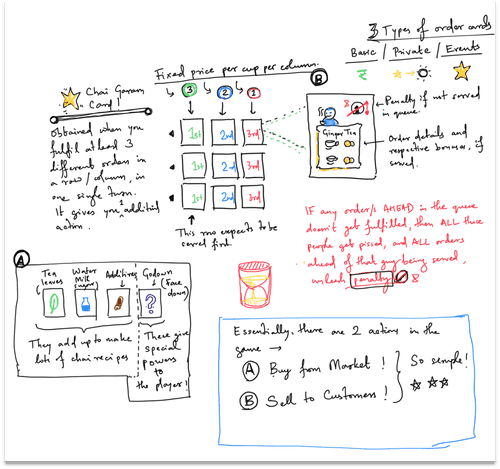 3 Types of order cards
Basic / Private / Events
Fixed price per cup per column.
3 2 1
Chai Garam
Card!
obtained when you
fulfil atleast 3
different orders in
a row/column, in
one single turn.
It gives you 1 additional
action.
1st 2nd 3rd
1st 2nd 3rd
1st 2nd 3rd
This row expects to be
served first.
B
Penalty if not served
in queue.
Ginger Tea
Order details and
respective bonuses, if
served.
IF any order/s AHEAD in the queue
doesn't get fulfilled, then ALL those
people get pissed, and ALL orders
ahead of that guy being served,
unleash penalty
A
Tea
leaves
Water
Milk
Sugar
Additives
Godown
(Face
down)
?
They add up to make
lots of chai recipes
These give
special
powers
to
the player!
Essentially, there are 2 actions in the
game →
A Buy from Market!
B Sell to Customers!
So simple!